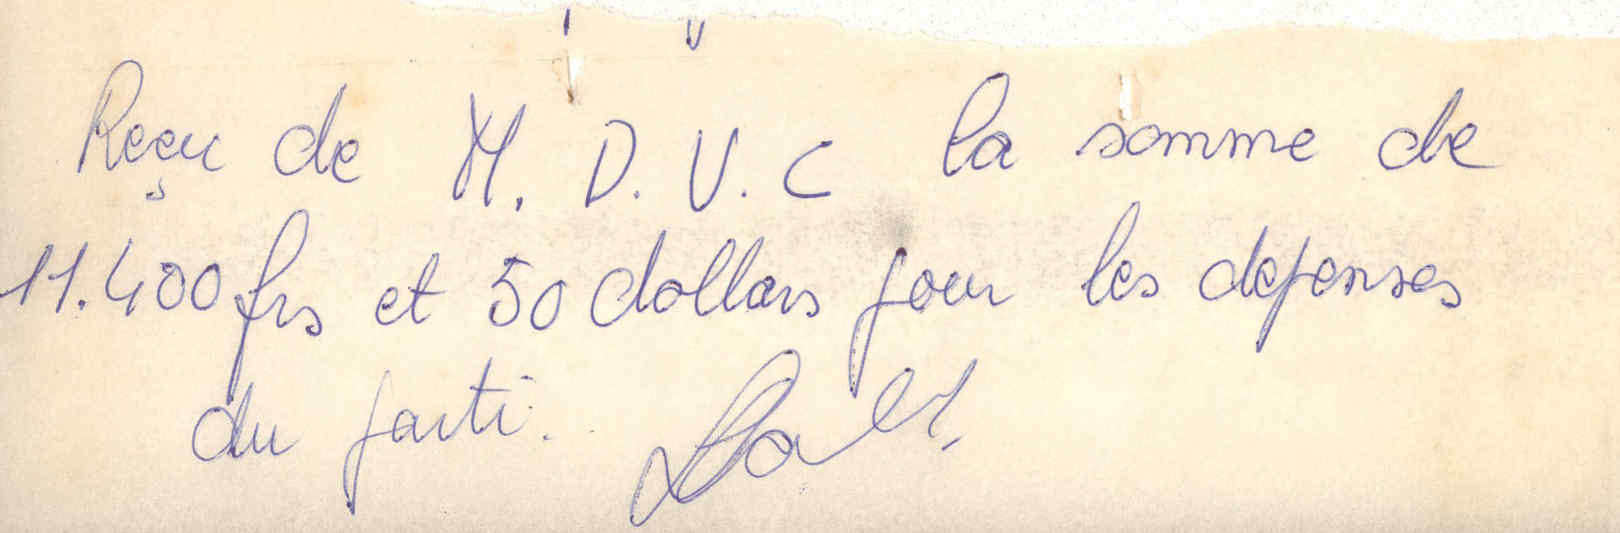 Reçu de M. D. V. C la somme de
11.400 frs et 50 dollars pour les depenses
du parti.